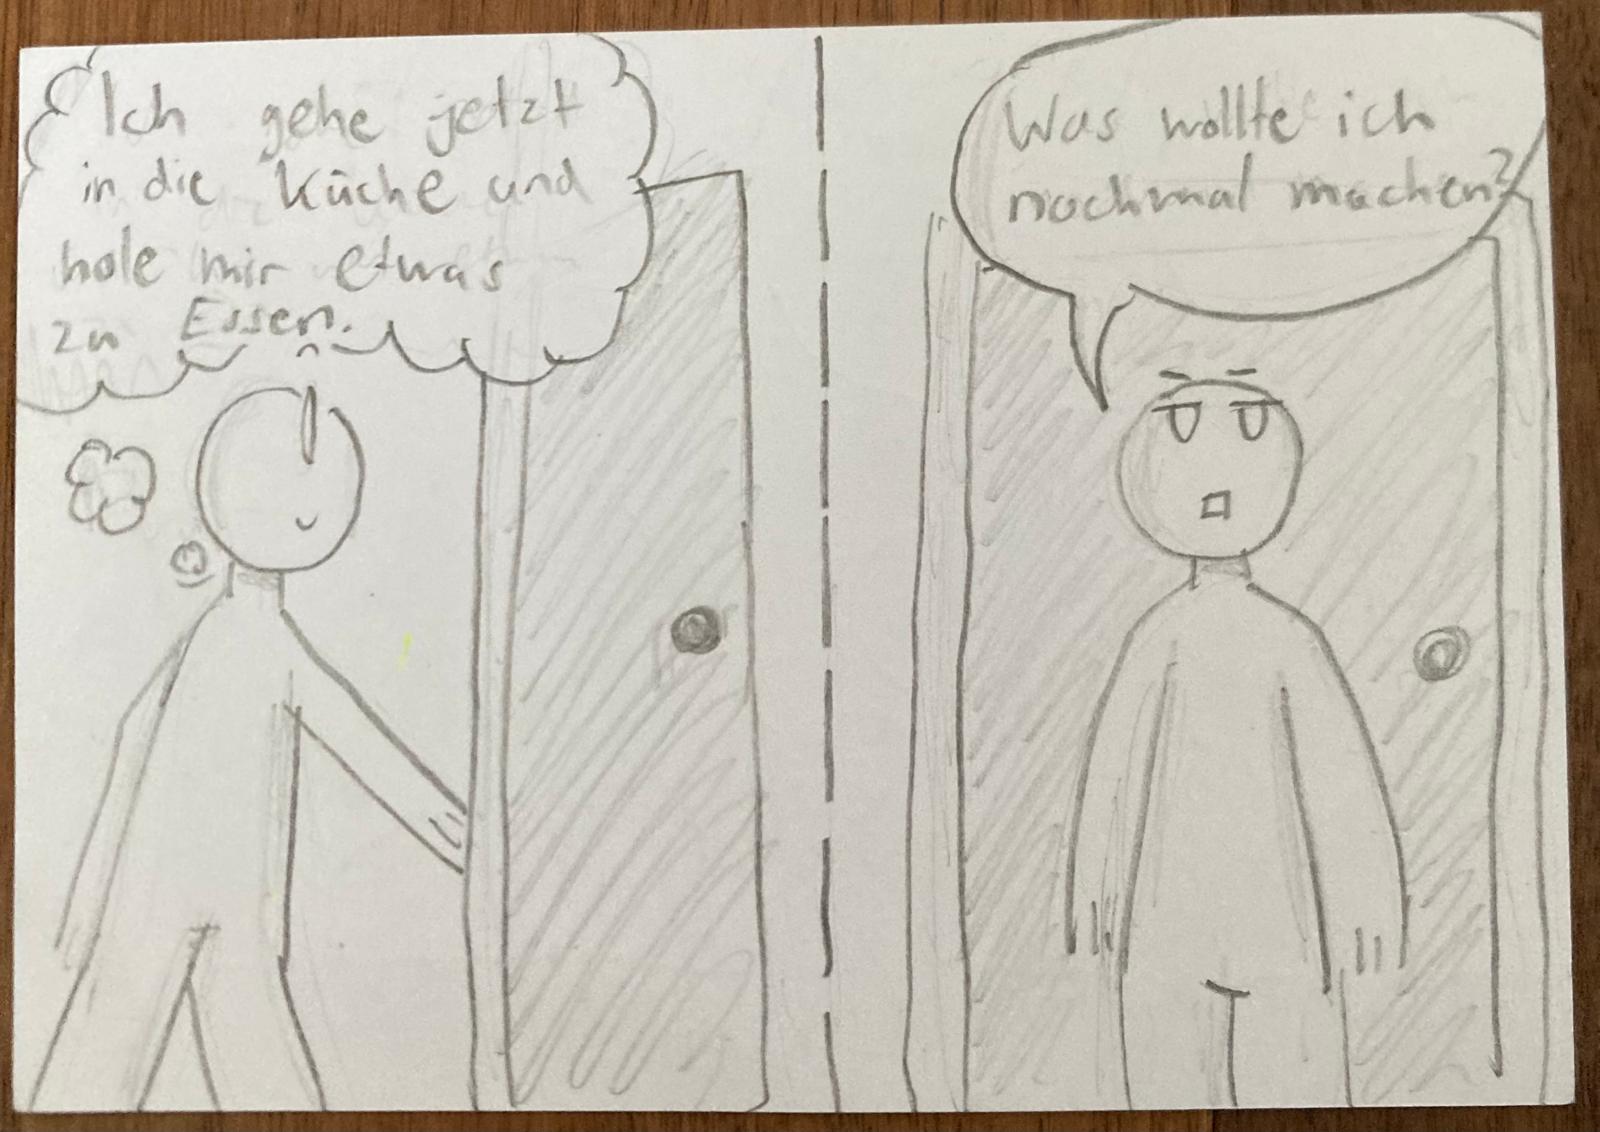 Ich gehe jetzt
in die Küche und
hole mir etwas
zu Essen.
Was wollte ich
nochmal machen?